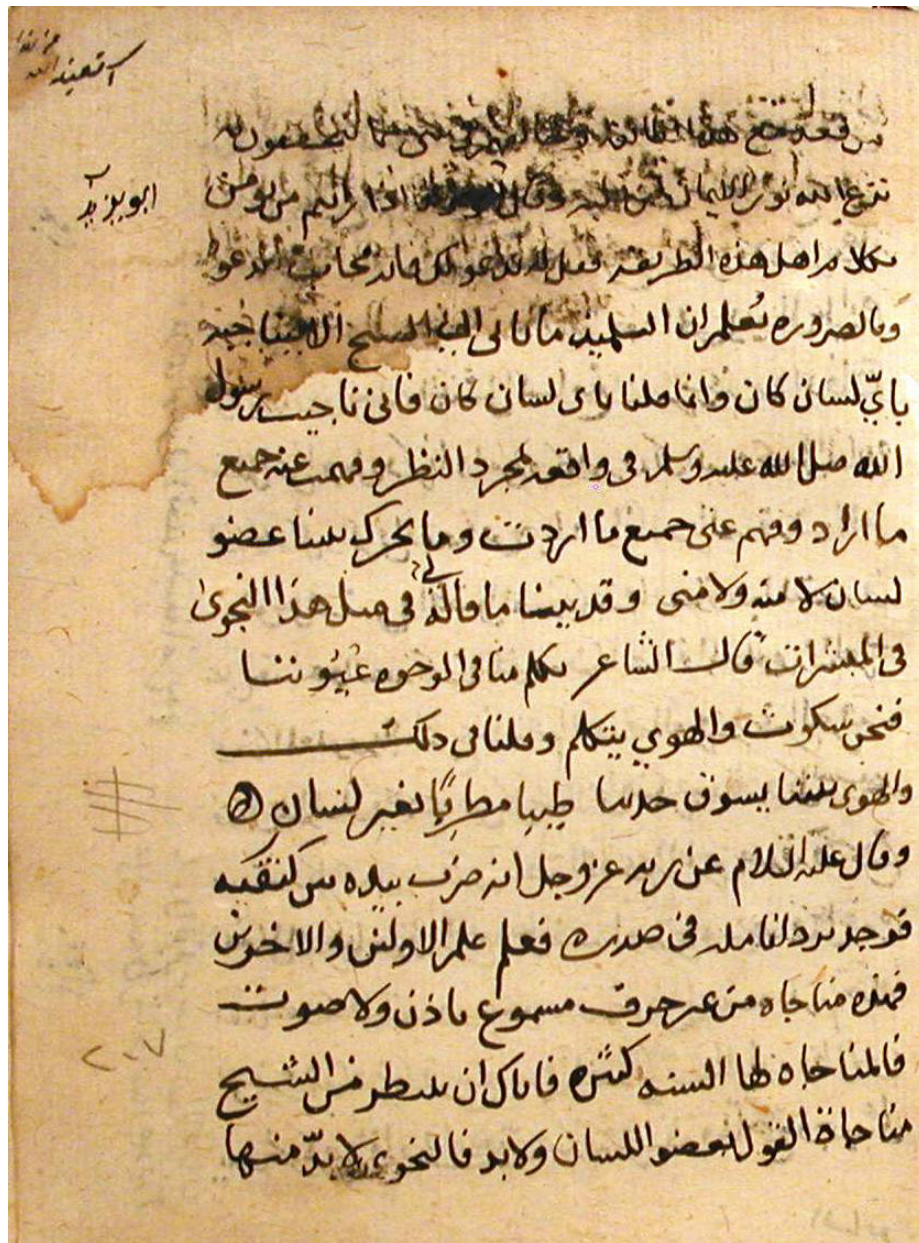 ابو يزيد
من قعد مع هذه الطائفة وخالفهم في شي مما يتحققون به
نزع الله نور الايمان من قلبه وقال ابو يزيد اذا رايتم من يومن
بكلام اهل هذه الطريقه فقل له يدعو لك فانه مجاب الدعوة
وبالضروره تعلم ان التلميذ ما ياتى الى الشيخ الا ليناجيه
باىّ لسان كان وانما قلنا باى لسان كان فانى ناجيت رسول
الله صلى الله عليه وسلم فى واقعه بمجرد النظر وفهمت عنه جميع
ما اراد وفهم عنى جميع ما اردت وما تحرك بيننا عضو
لسان لا منه ولا منى وقد بينا ما قاله لى فى مثل هذا النجوى
فى المبشرات قال الشاعر تكلم منا فى الوجوه عيوننا
فنحن سكوت والهوي يتكلم وقلنا فى ذلك
والهوى بيننا يسوق حديثا طيبا مطربًا بغير لسان
وقال عليه السلام عن ربه عز وجل انه ضرب بيده بين كتفيه
فوجد برد انامله فى صدره فعلم علم الاولين والاخرين
فهذه مناجاه من غير حرف مسموع باذن ولا صوت
فالمناجاه لها السنه كثيره فاياك ان تنتظر من الشيخ
مناجاة القول بعضو اللسان ولابد فالنجوى لابدّ منها
٢٠٧